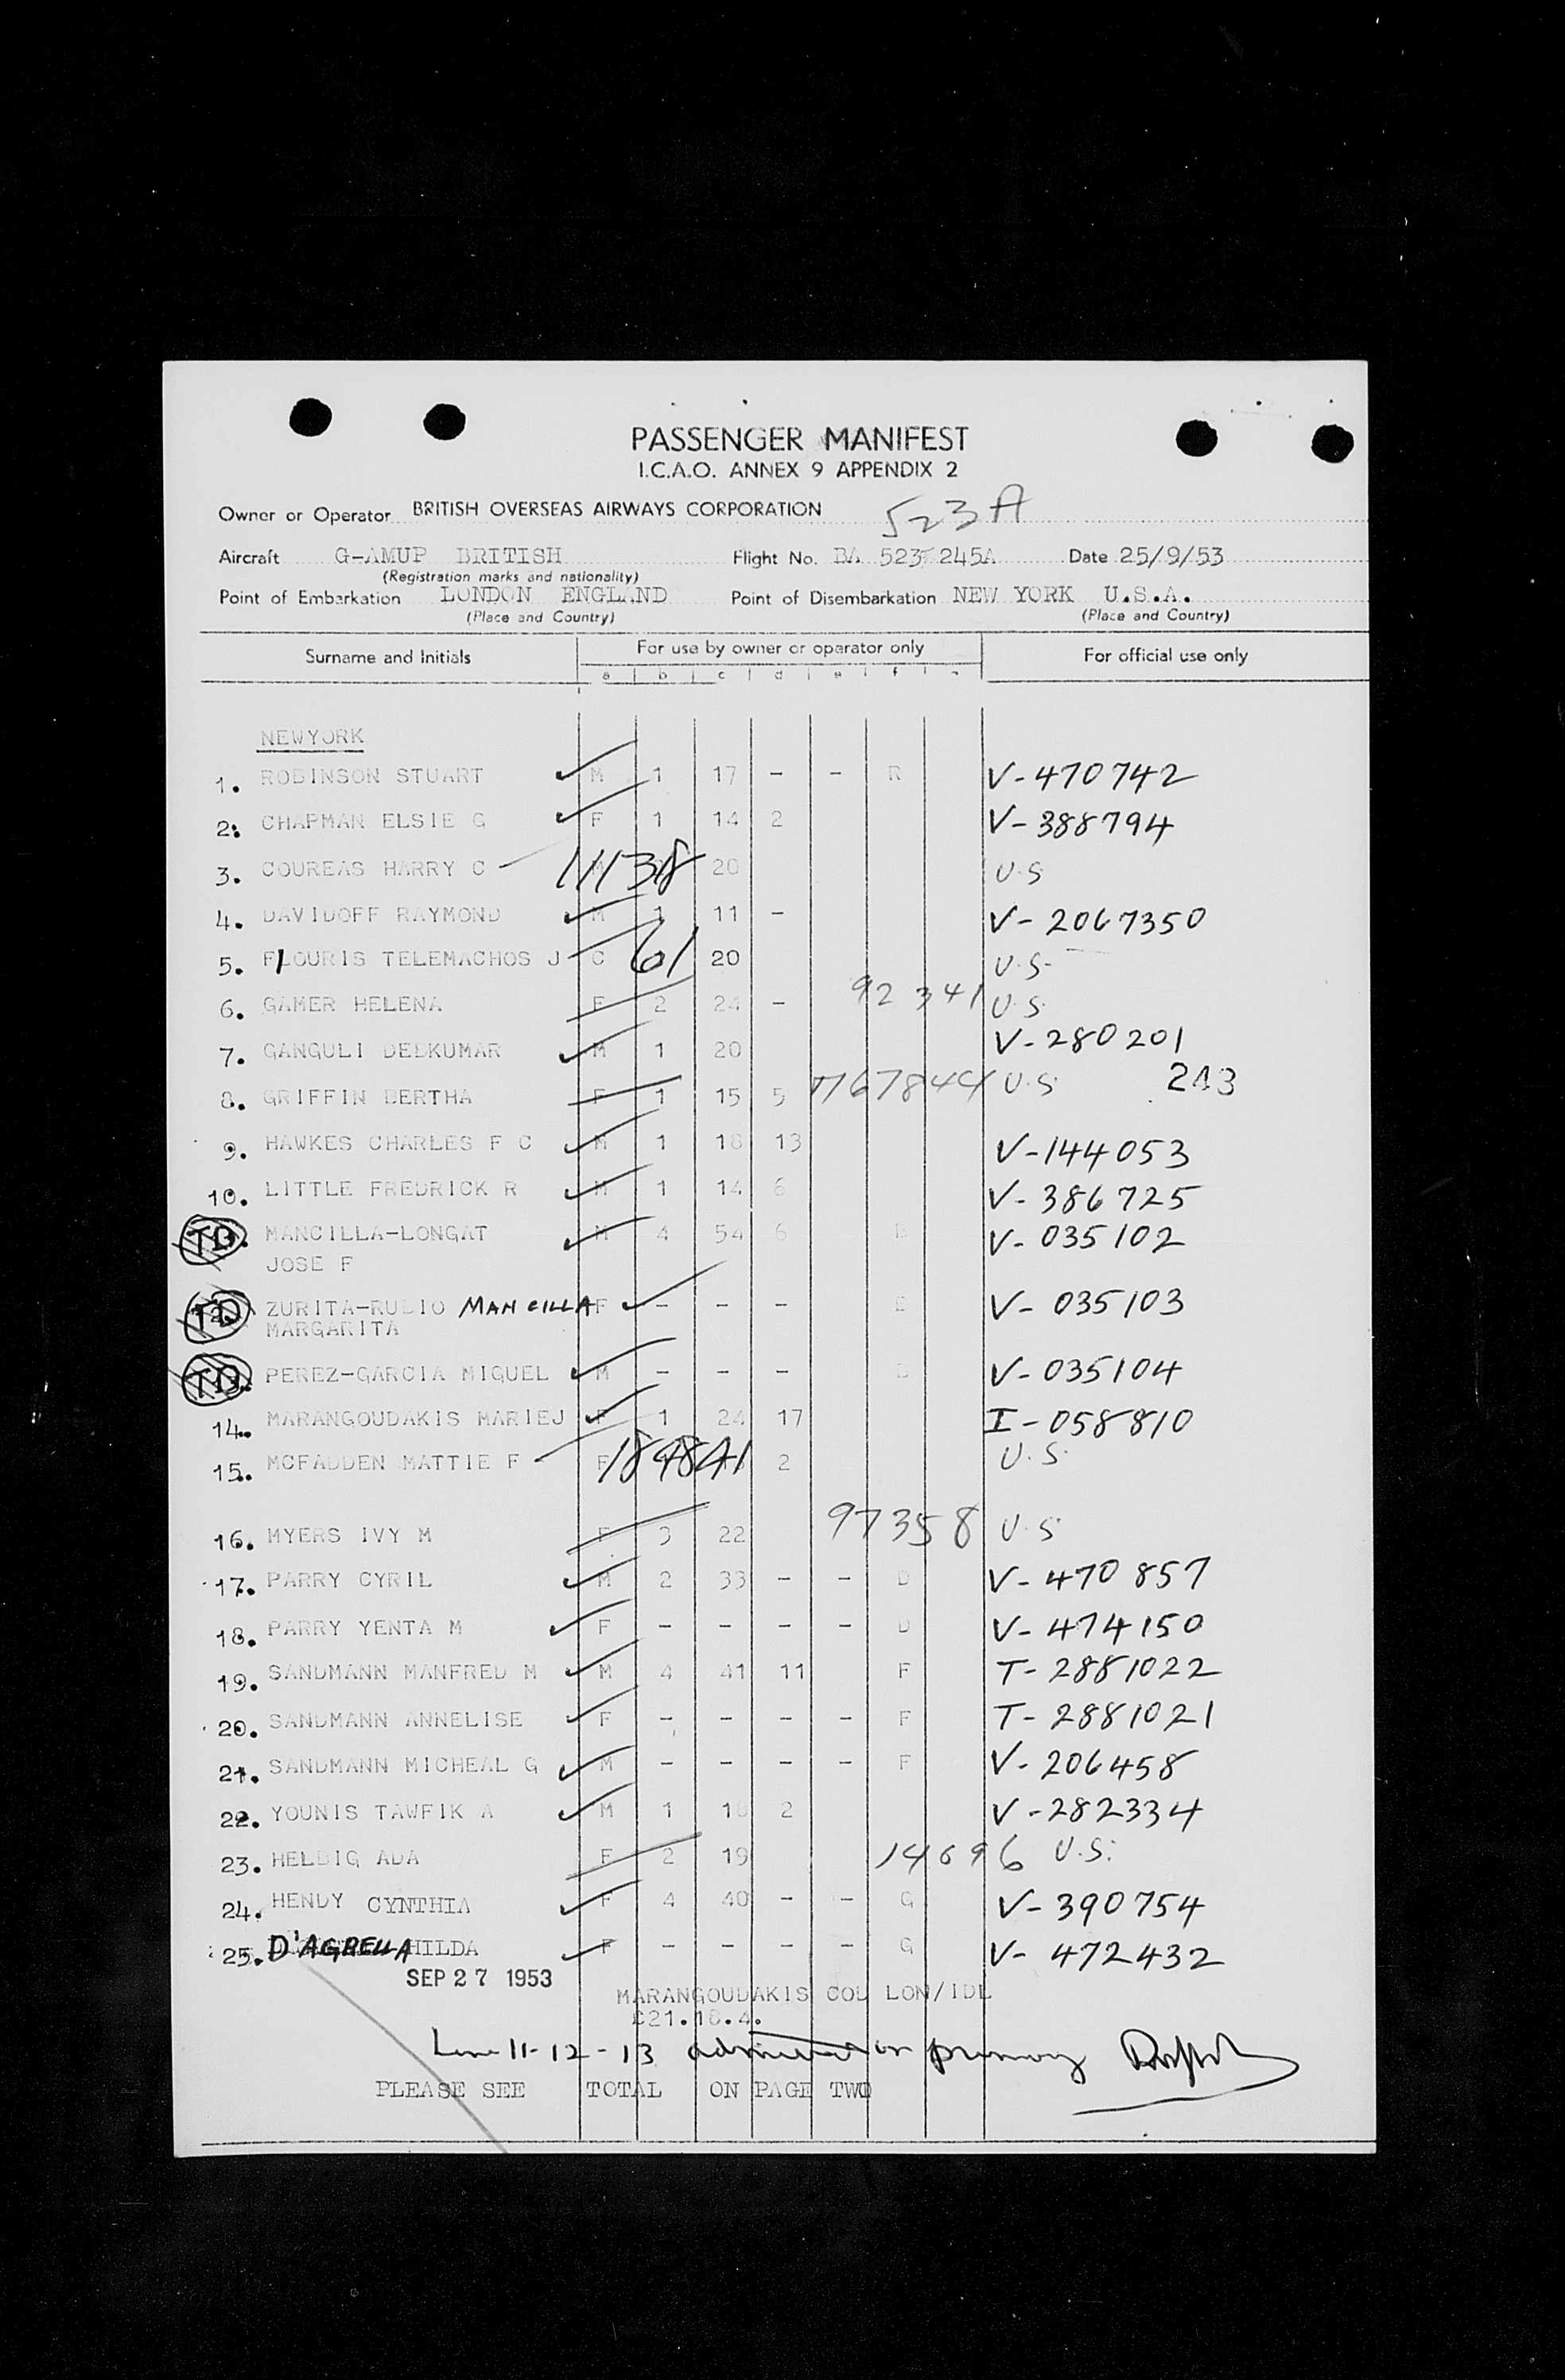 PASSENGER MANIFEST
I.C.A.O. ANNEX 9 APPENDIX 2
Owner or Operator BRITISH OVERSEAS AIRWAYS CORPORATION 523A
Aircraft G-AMUP BRITISH Flight No. BA 523 245A Date 25/9/53
(Registration marks and nationality)
Point of Embarkation LONDON ENGLAND Point of Disembarkation NEW YORK U.S.A.
(Place and Country) (Place and Country)
Surname and Initials For use by owner or operator only For official use only
a b c d e f
NEWYORK
1. ROBINSON STUART M 1 17 - - R V-470742
2. CHAPMAN ELSIE G F 1 14 2 V-388794
3. COUREAS HARRY C 11138 20 U.S
4. DAVIDOFF RAYMOND M 1 11 - V-2067350
5. FLOURIS TELEMACHOS J C 61 20 U.S-
6. GAMER HELENA F 2 24 - 92341 U.S.
7. GANGULI DEBKUMAR M 1 20 V-280201
8. GRIFFIN BERTHA F 1 15 5 1767844 U.S. 243
9. HAWKES CHARLES F C M 1 18 13 V-144053
10. LITTLE FREDRICK R M 1 14 6 V-386725
TD MANCILLA-LONGAT M 4 54 6 V-035102
JOSE F
TD ZURITA-RUBIO MANCILLA F - - - V-035103
MARGARITA
TD PEREZ-GARCIA MIGUEL M - - - V-035104
14. MARANGOUDAKIS MARIEJ F 1 24 17 I-058810
15. MCFADDEN MATTIE F F 2 U.S.
16. MYERS IVY M F 3 22 97358 U.S
17. PARRY CYRIL M 2 33 - - D V-470857
18. PARRY YENTA M F - - - - D V-474150
19. SANDMANN MANFRED M M 4 41 11 F T-2881022
20. SANDMANN ANNELISE F - - - - F T-2881021
21. SANDMANN MICHEAL G M - - - - F V-206458
22. YOUNIS TAWFIK A M 1 18 2 V-282334
23. HELBIG ADA F 2 19 14696 U.S.
24. HENDY CYNTHIA F 4 40 - - G V-390754
25. D'AGRELLA HILDA F - - - - G V-472432
SEP 27 1953
MARANGOUDAKIS COD LON/IDL
£21.18.4.
Line 11-12-13 admitted on primary
PLEASE SEE TOTAL ON PAGE TWO